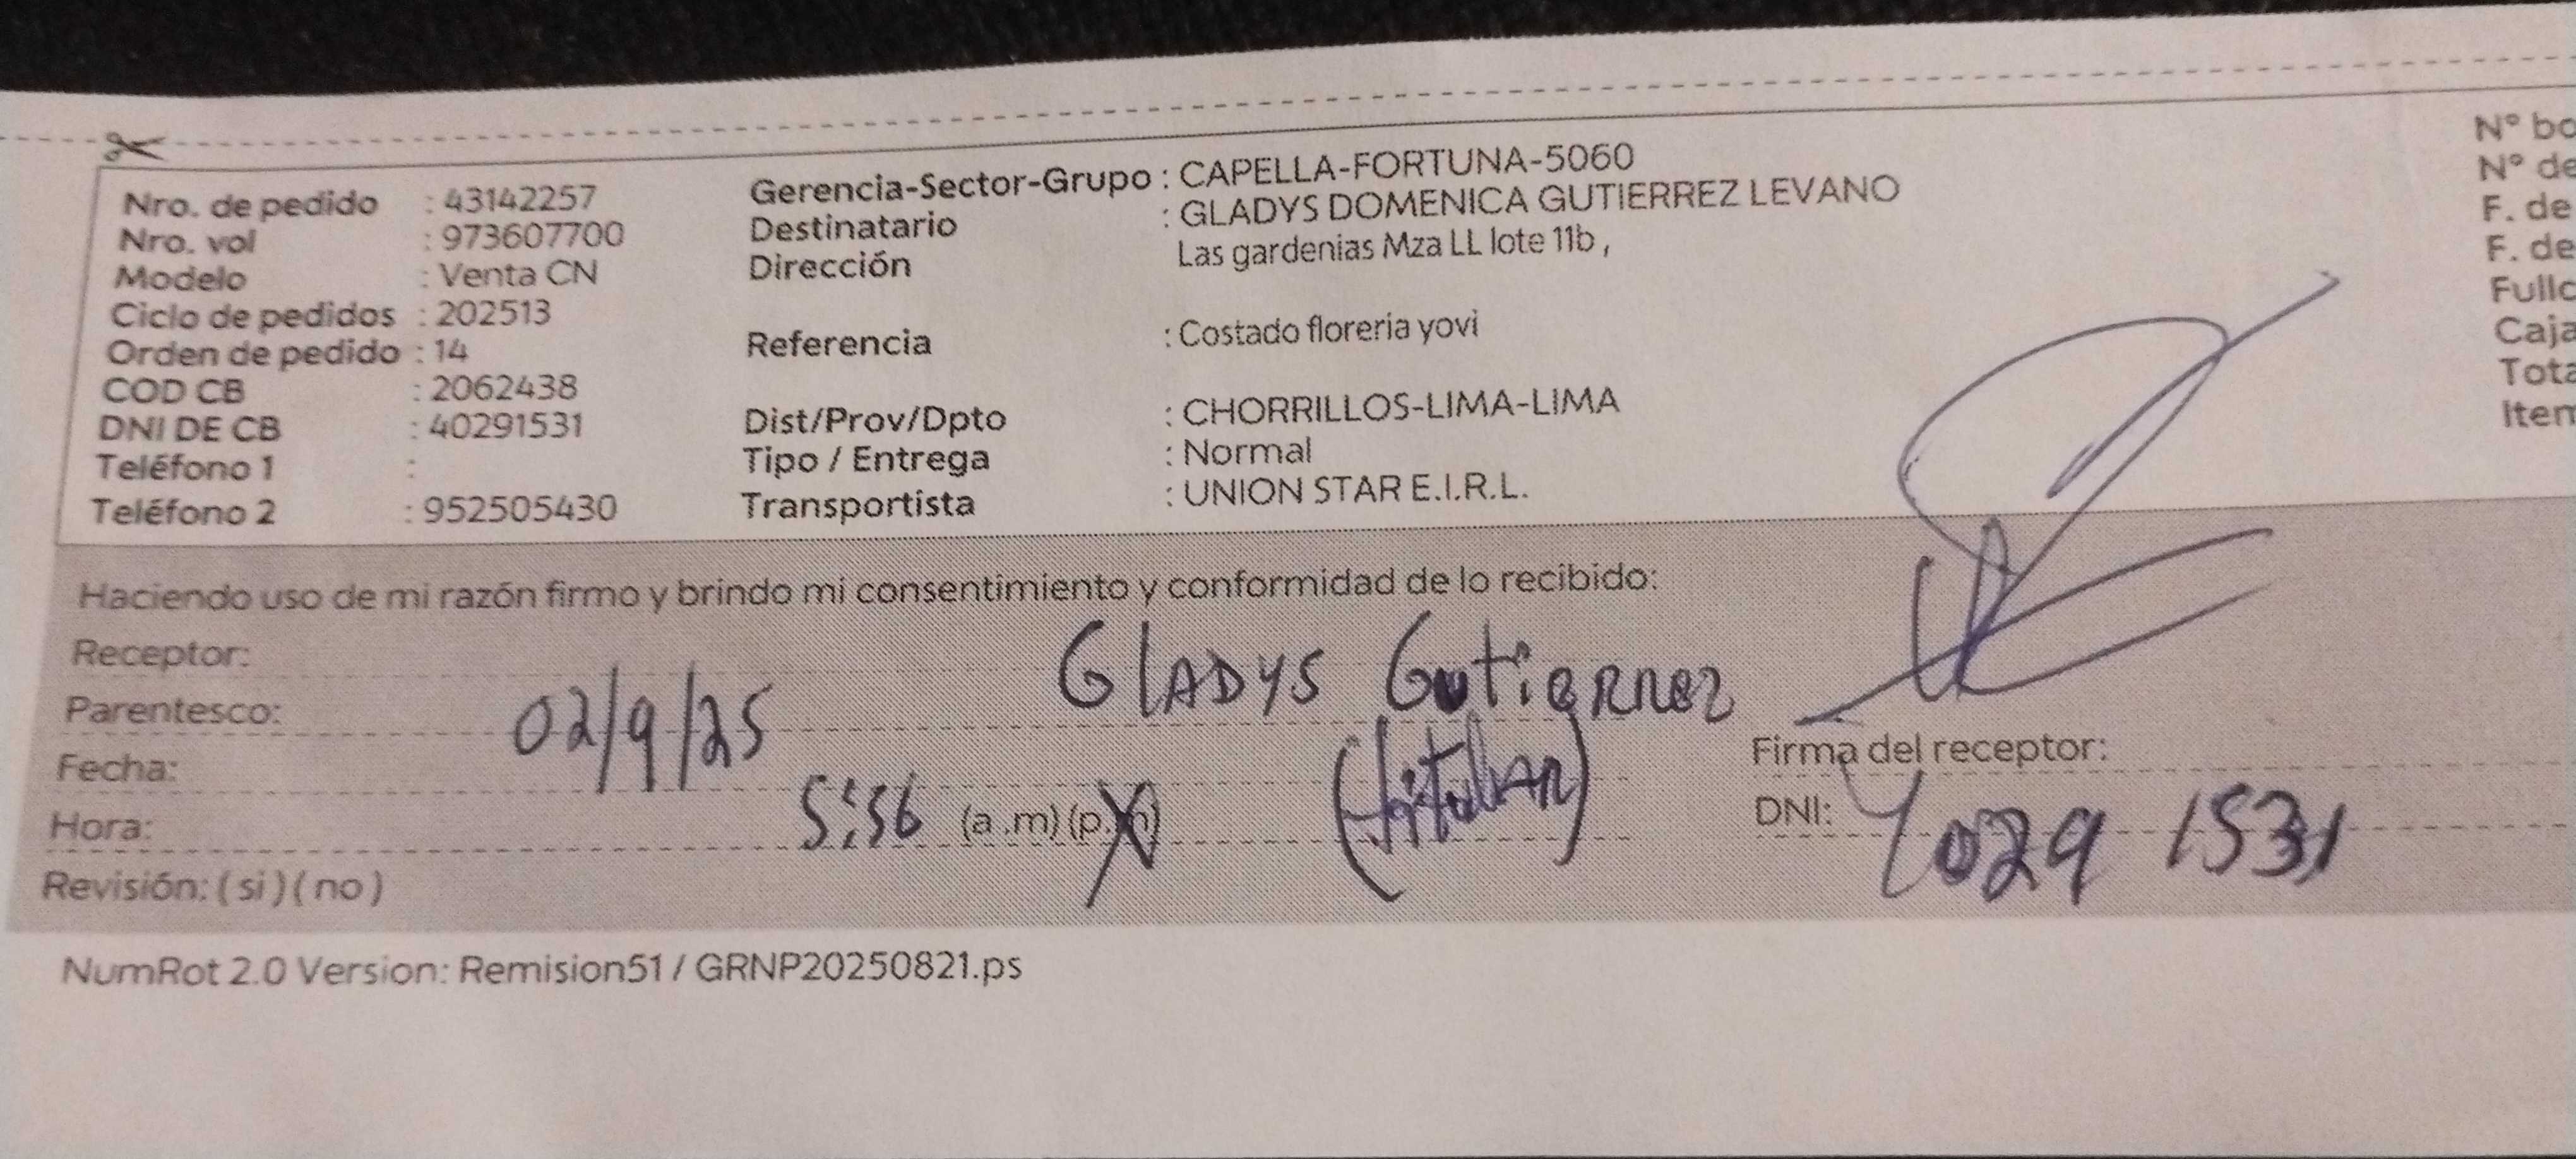 Nro. de pedido : 43142257
Nro. vol : 973607700
Modelo : Venta CN
Ciclo de pedidos : 202513
Orden de pedido : 14
COD CB : 2062438
DNI DE CB : 40291531
Teléfono 1 :
Teléfono 2 : 952505430
Gerencia-Sector-Grupo : CAPELLA-FORTUNA-5060
Destinatario : GLADYS DOMENICA GUTIERREZ LEVANO
Dirección Las gardenias Mza LL lote 11b ,
Referencia : Costado florería yovi
Dist/Prov/Dpto : CHORRILLOS-LIMA-LIMA
Tipo / Entrega : Normal
Transportista : UNION STAR E.I.R.L.
N° bo
N° de
F. de
F. de
Fullc
Caja
Tota
Item
Haciendo uso de mi razón firmo y brindo mi consentimiento y conformidad de lo recibido:
Receptor: GLADYS Gutierrez
Parentesco: (titular)
Fecha: 02/9/25
Hora: 5:56 (a .m) (p.m)
Revisión: ( si ) ( no )
Firma del receptor:
DNI: 4029 1531
NumRot 2.0 Version: Remision51 / GRNP20250821.ps